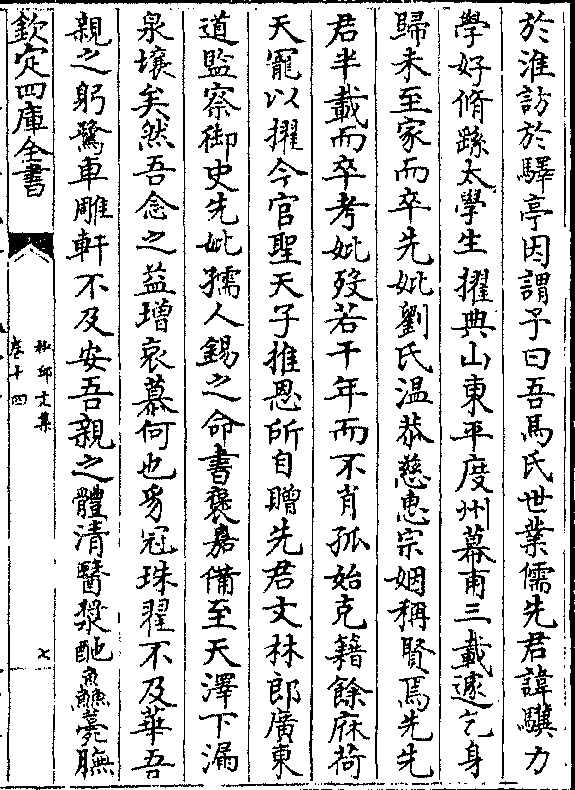 於淮訪於驛亭因謂予曰吾馬氏世業儒先君諱驥力
學好脩繇太學生擢典山東平度州幕甫三載遂乞身
歸未至家而卒先妣劉氏温恭慈惠宗姻稱賢焉先先
君半載而卒考妣殁若干年而不肖孤始克籍餘庥荷
天寵以擢今官聖天子推恩所自贈先君文林郎廣東
道監察御史先妣孺人錫之命書褒嘉備至天澤下漏
泉壤矣然吾念之益增哀慕何也豸冠珠翟不及華吾
親之躬鷺車雕軒不及安吾親之體清醫漿酏鱻薧膴
欽定四庫全書
卷十四
七